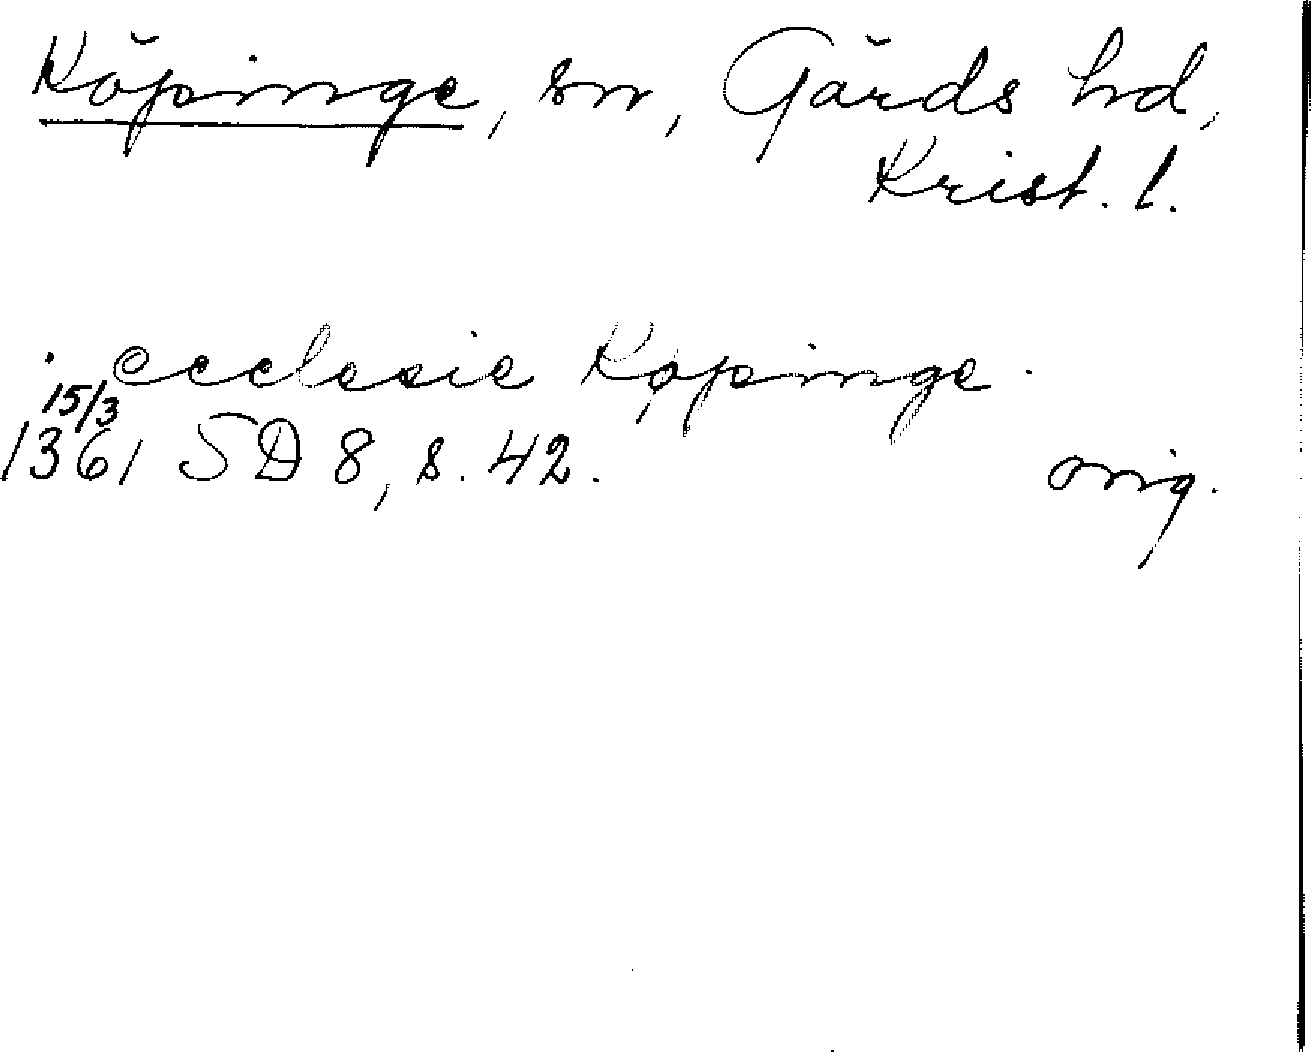 Köpinge, sn, Gärds hd,
Krist. l.
. ecclesie Køpinge .
15/3
1361 SD 8, s. 42.
orig.